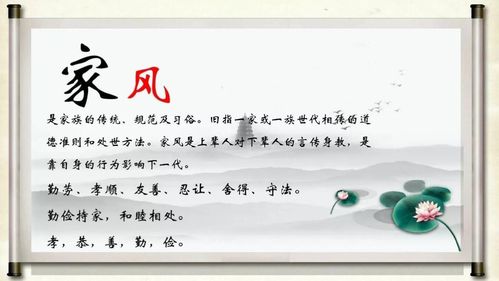 家风
是家族的传统、规范及习俗。旧指一家或一族世代相传的道
德准则和处世方法。家风是上辈人对下辈人的言传身教，是
靠自身的行为影响下一代。
勤劳、孝顺、友善、忍让、舍得、守法。
勤俭持家，和睦相处。
孝，恭，善，勤，俭。